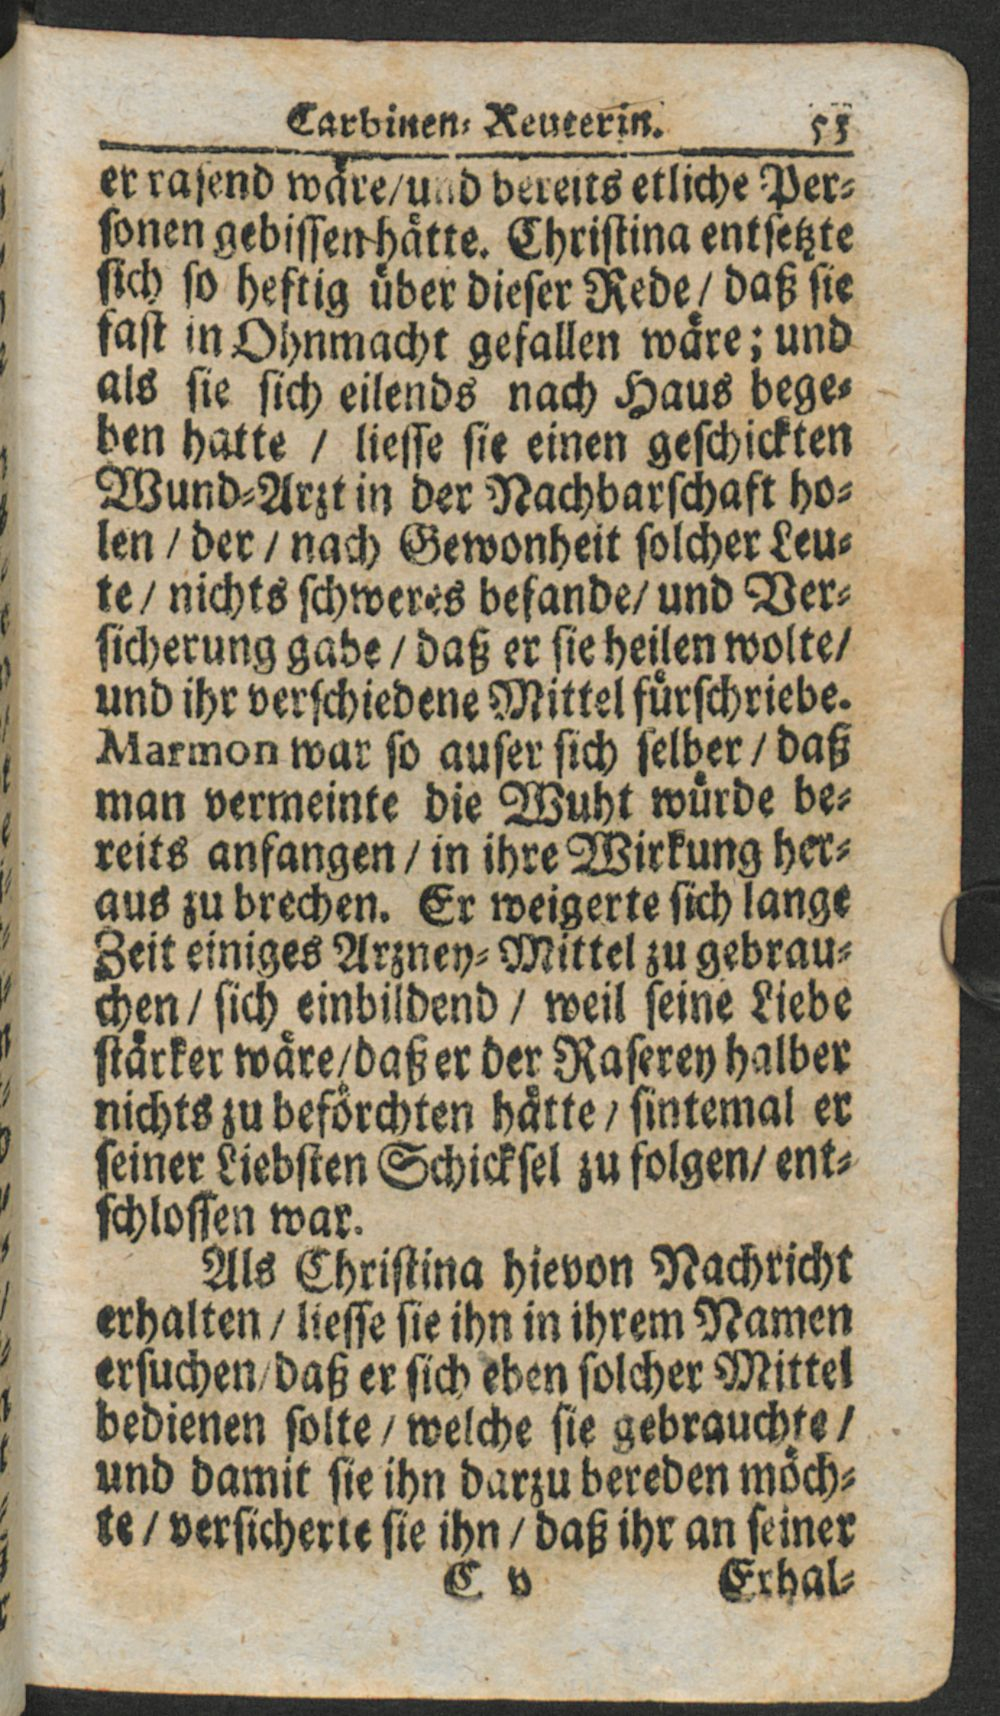 Carbinen-Reuterin. 53
er rasend wäre/und bereits etliche Per-
sonen gebissen hätte. Christina entsetzte
sich so heftig über dieser Rede / daß sie
fast in Ohnmacht gefallen wäre; und
als sie sich eilends nach Haus bege-
ben hatte / liesse sie einen geschickten
Wund-Arzt in der Nachbarschaft ho-
len / der / nach Gewonheit solcher Leu-
te / nichts schweres befande/ und Ver-
sicherung gabe / daß er sie heilen wolte/
und ihr verschiedene Mittel fürschriebe.
Marmon war so auser sich selber / daß
man vermeinte die Wuht würde be-
reits anfangen / in ihre Wirkung her-
aus zu brechen. Er weigerte sich lange
Zeit einiges Arzney-Mittel zu gebrau-
chen / sich einbildend / weil seine Liebe
stärker wäre/daß er der Raserey halber
nichts zu beförchten hätte / sintemal er
seiner Liebsten Schicksel zu folgen/ ent-
schlossen war.
Als Christina hievon Nachricht
erhalten / liesse sie ihn in ihrem Namen
ersuchen/daß er sich eben solcher Mittel
bedienen solte / welche sie gebrauchte /
und damit sie ihn darzu bereden möch-
te / versicherte sie ihn / daß ihr an seiner
C v Erhal-